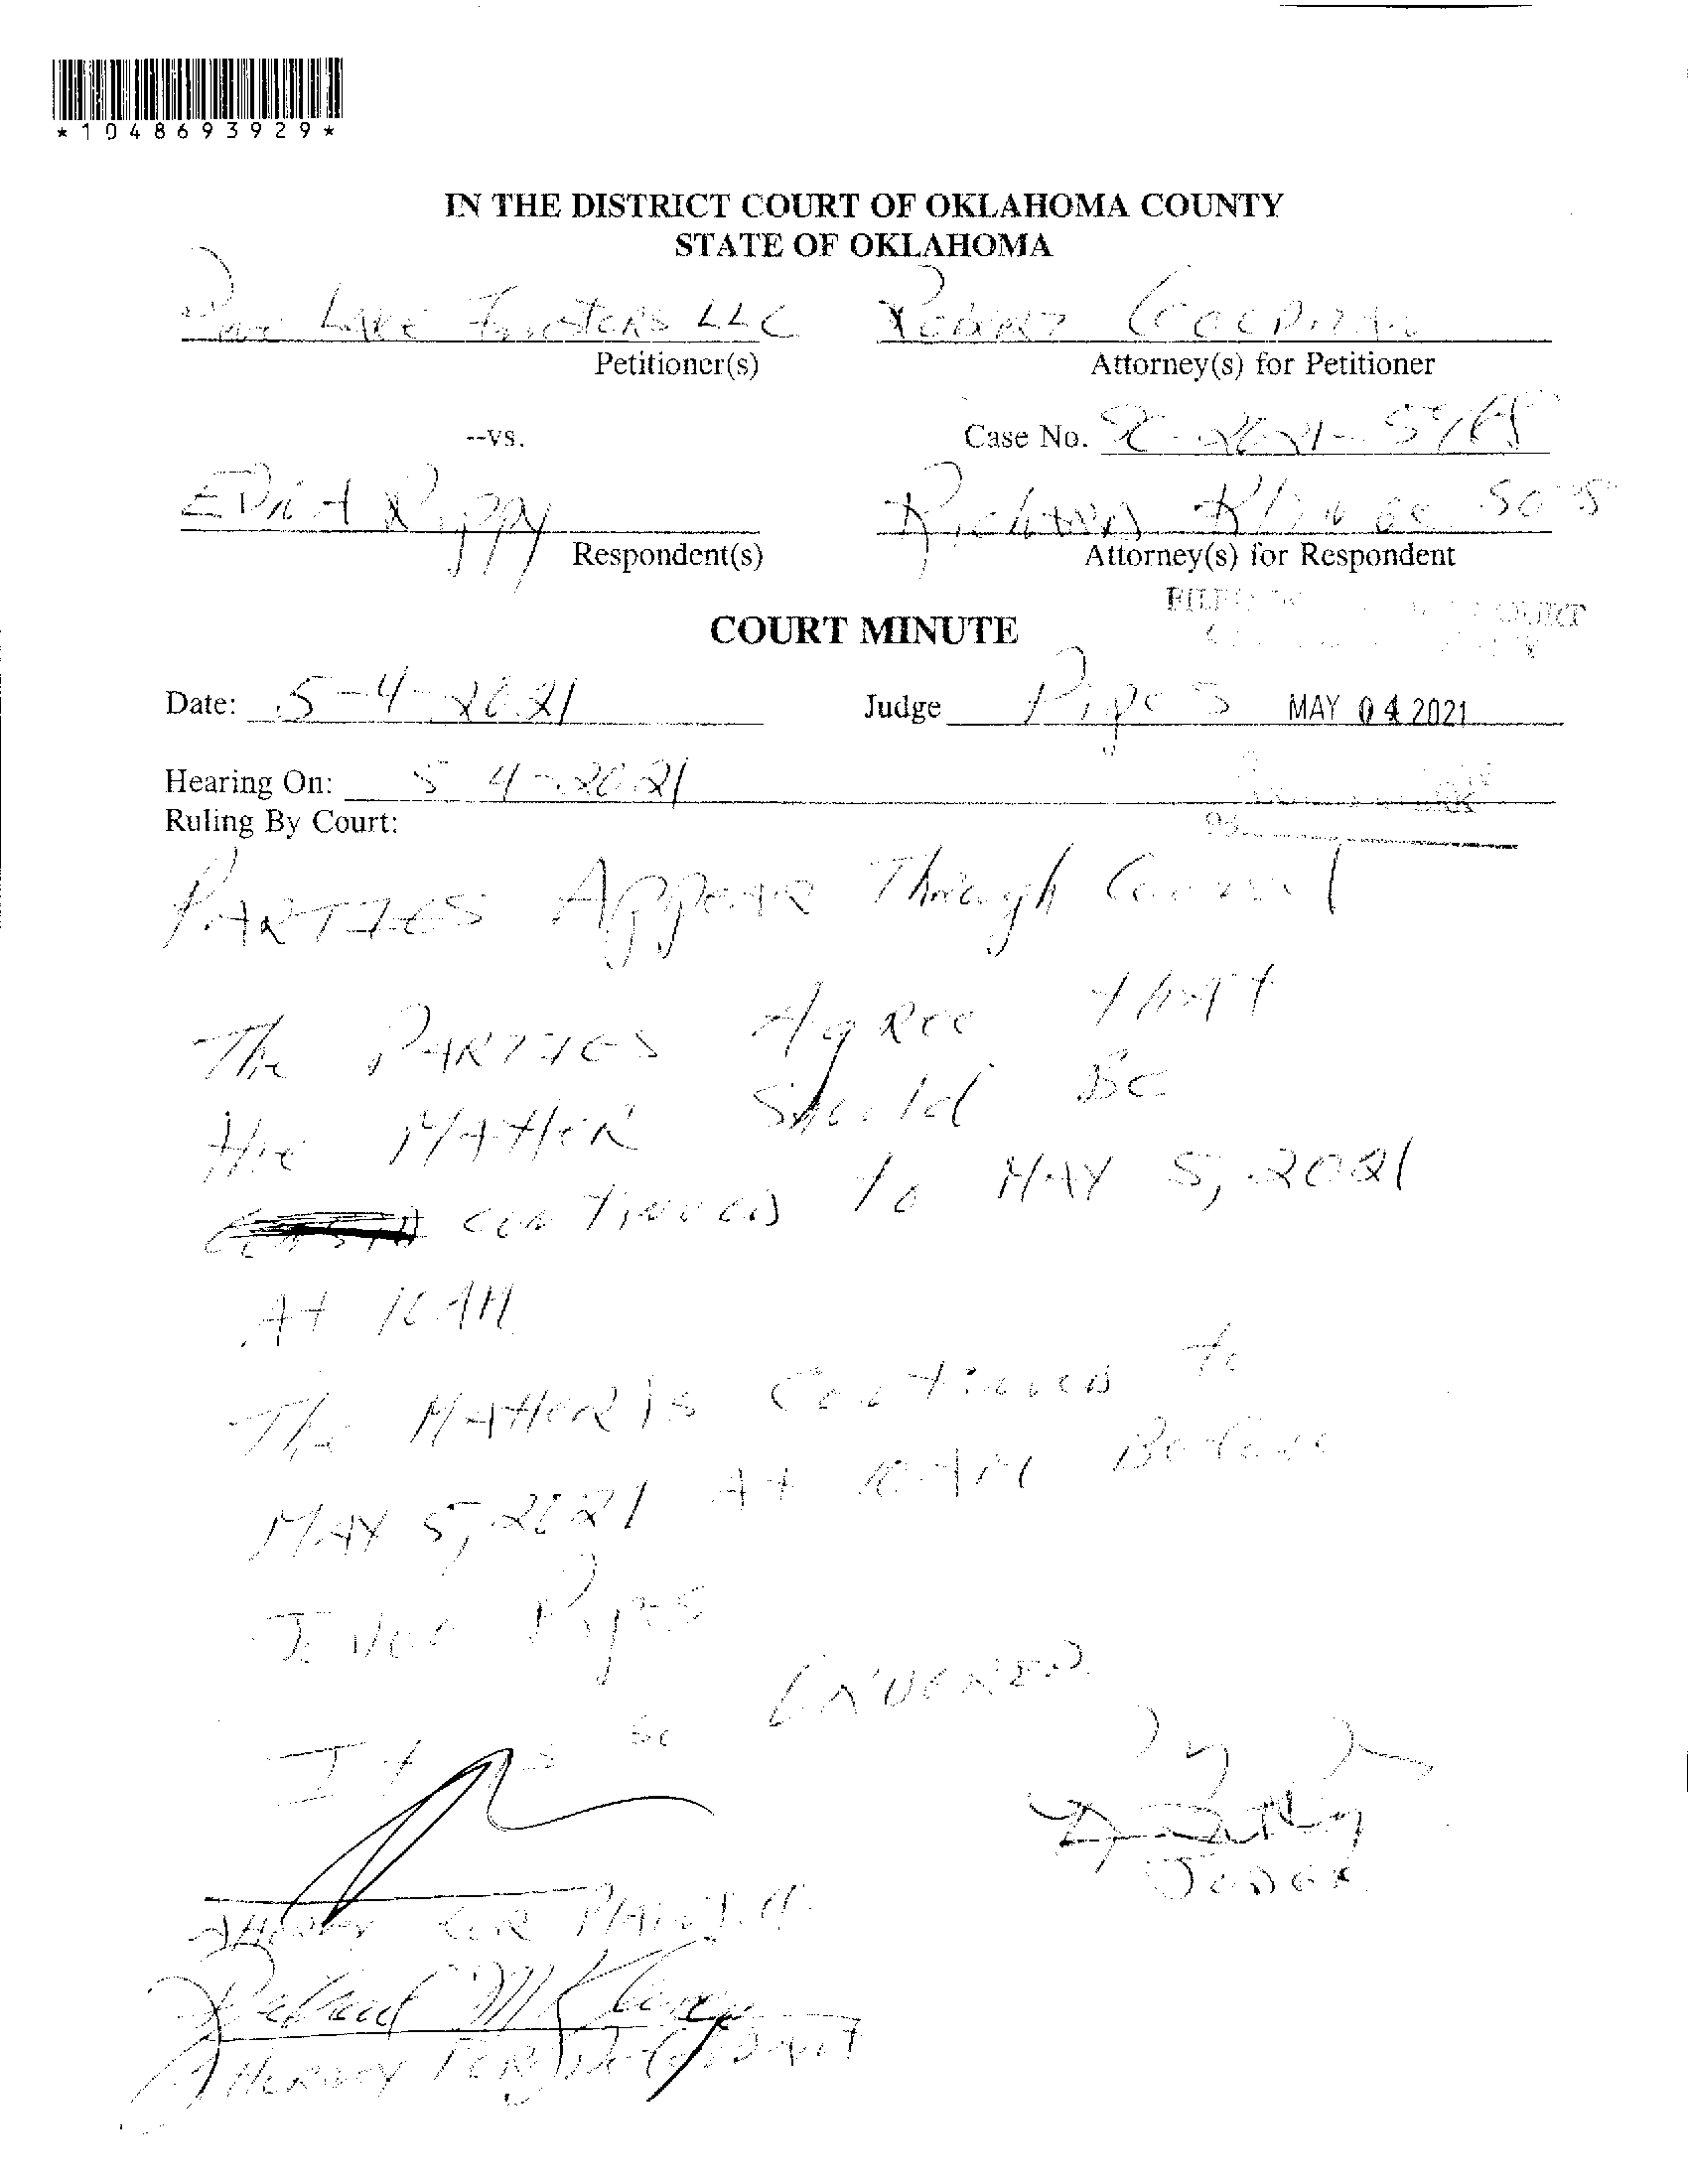 *1048693929*
IN THE DISTRICT COURT OF OKLAHOMA COUNTY
STATE OF OKLAHOMA
Lake LLC Robert
Petitioner(s) Attorney(s) for Petitioner
--vs. Case No. SC-2021-5768
Rippy Richard
Respondent(s) Attorney(s) for Respondent
COURT MINUTE
Date: 5-4-2021 Judge Pipes MAY 04 2021
Hearing On: 5-4-2021
Ruling By Court:
PARTIES Appear Through Counsel
The PARTIES Agree that
the MATTER Should Be
continued to MAY 5, 2021
At 10 AM
The Matter is Continued to
MAY 5, 2021 At 10 AM Before
Pipes
It is so
JUDGE
Attorney for Plaintiff
Richard M
Attorney for Defendant